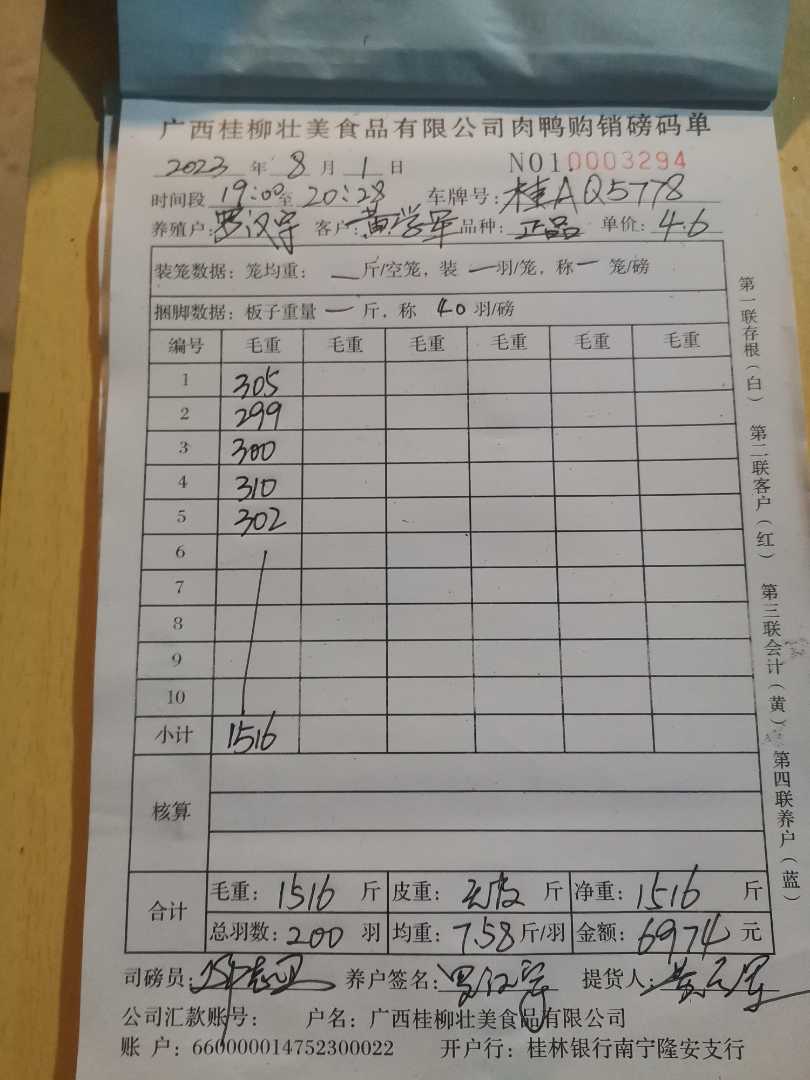 广西桂柳壮美食品有限公司肉鸭购销磅码单
2023 年 8 月 1 日 NO1.0003294
时间段 19:00 至 20:28 车牌号: 桂AQ5778
养殖户: 罗汉宇 客户: 黄学军 品种: 正品 单价: 4.6
装笼数据: 笼均重: 一 斤/空笼, 装 一 羽/笼, 称 一 笼/磅
捆脚数据: 板子重量 一 斤, 称 40 羽/磅
编号 毛重 毛重 毛重 毛重 毛重 毛重
1 305
2 299
3 300
4 310
5 302
6
7
8
9
10
小计 1516
核算
合计 毛重: 1516 斤 皮重: 斤 净重: 1516 斤
总羽数: 200 羽 均重: 7.58 斤/羽 金额: 6974 元
司磅员: 养户签名: 提货人:
公司汇款账号: 户名: 广西桂柳壮美食品有限公司
账 户: 660000014752300022 开户行: 桂林银行南宁隆安支行
第一联存根(白) 第二联客户(红) 第三联会计(黄) 第四联养户(蓝)